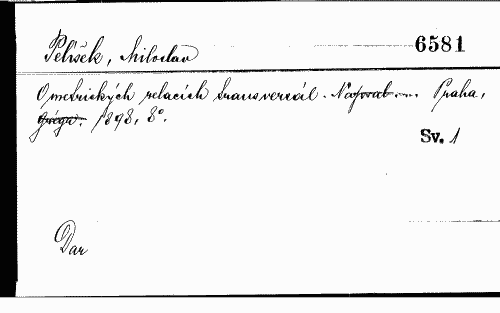 Pelíšek, Miloslav
6581
O metrických relacích transversál. Napsal .... Praha,
Grégr. 1898, 8°.
Sv. 1
Dar